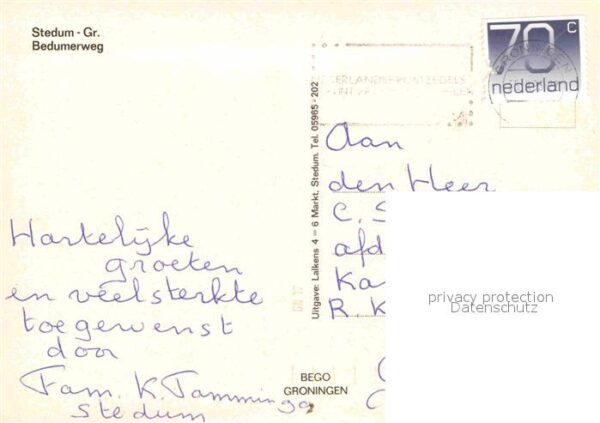 Stedum - Gr.
Bedumerweg
70 c
nederland
GRONINGEN
Uitgave: Laikens 4 - 6 Markt, Stedum. Tel. 05965 - 202
Aan
den Heer
C. S
afd
Ka
R. K
Hartelijke
groeten
en veel sterkte
toegewenst
door
Fam. K. Tamminga
Stedum
BEGO
GRONINGEN
privacy protection
Datenschutz